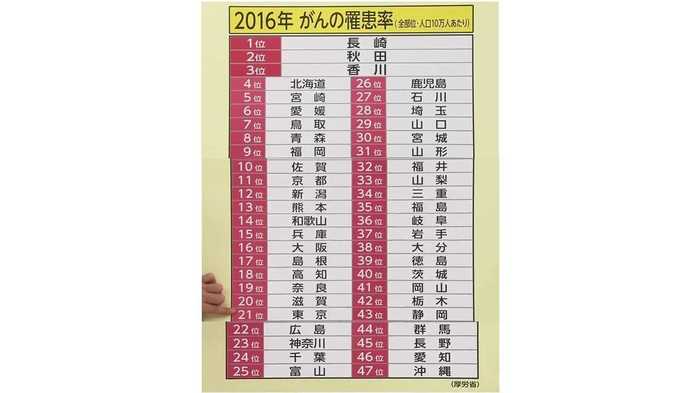 2016年 がんの罹患率(全部位・人口10万人あたり)
1位 長崎
2位 秋田
3位 香川
4位 北海道 26位 鹿児島
5位 宮崎 27位 石川
6位 愛媛 28位 埼玉
7位 鳥取 29位 山口
8位 青森 30位 宮城
9位 福岡 31位 山形
10位 佐賀 32位 福井
11位 京都 33位 山梨
12位 新潟 34位 三重
13位 熊本 35位 福島
14位 和歌山 36位 岐阜
15位 兵庫 37位 岩手
16位 大阪 38位 大分
17位 島根 39位 徳島
18位 高知 40位 茨城
19位 奈良 41位 岡山
20位 滋賀 42位 栃木
21位 東京 43位 静岡
22位 広島 44位 群馬
23位 神奈川 45位 長野
24位 千葉 46位 愛知
25位 富山 47位 沖縄
(厚労省)